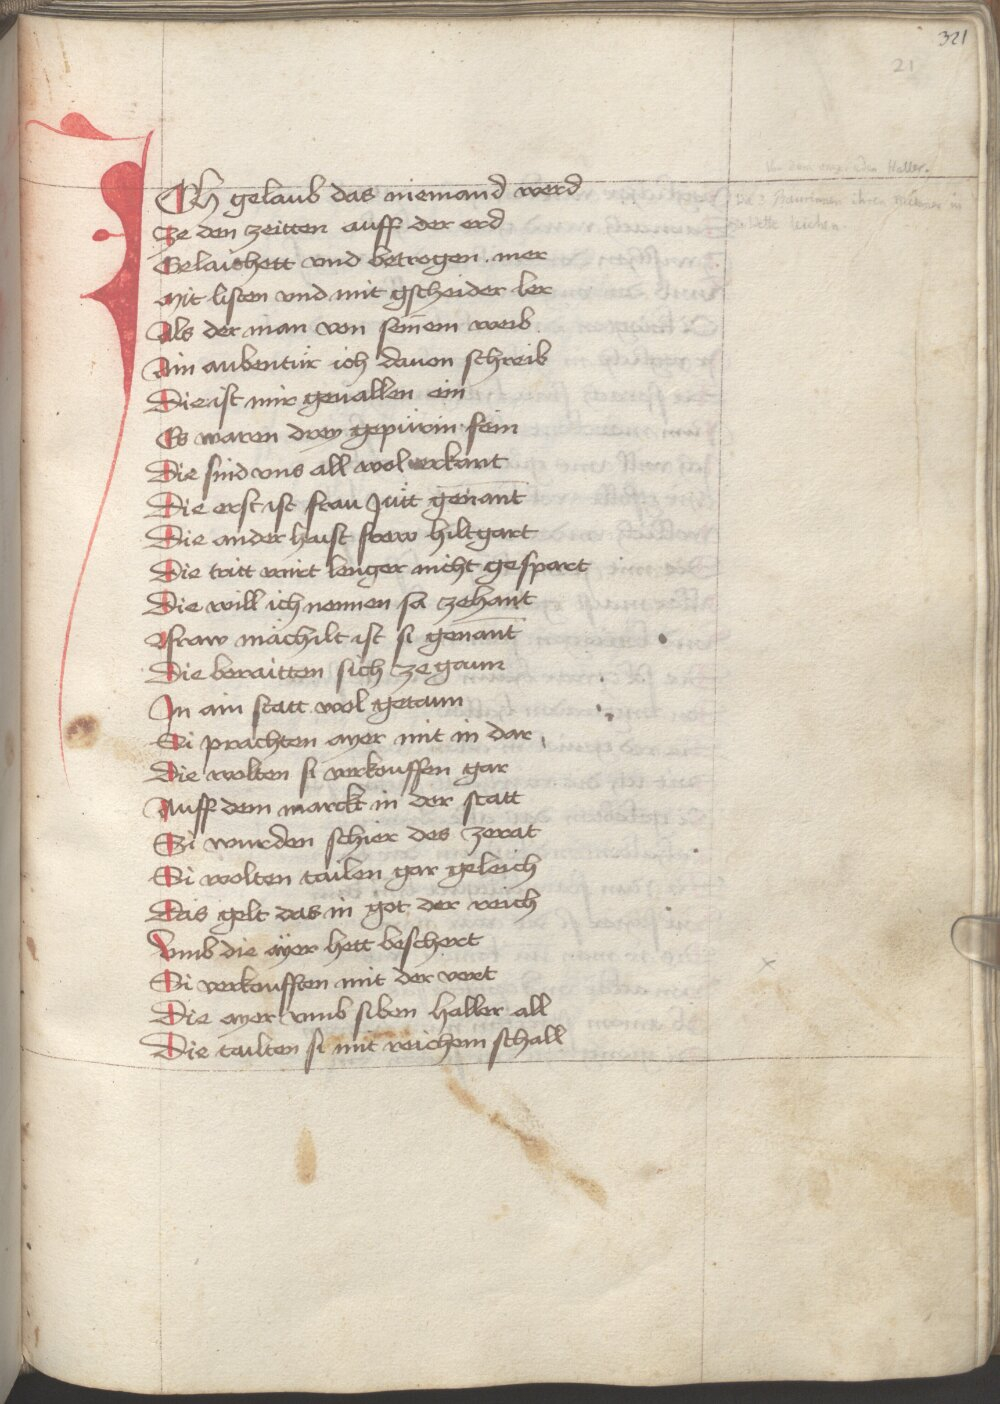 321
21
Haller.
Die 3 Bäurinnen ihren Männer
ICh gelaub das niemand werd
Ze den zeitten auff der erd
Gelaichett vnd betrogen mer
Mit listen vnd mit gscheider ler
Als der man von seinem weib
Ain aubentür ich dauon schreib
Die ist mir geuallen ein
Es waren drey gepürin fein
Die sind vns all wol erkant
Die erst ist frau Jütt genant
Die ander haist frow hiltgart
Die tritt wirt lenger nicht gespart
Die will ich nennen sa zehant
fraw mächilt ist si genant
Die beraitten sich ze gaun
In ain statt wol getaun
Si prachten ayer mit in dar
Die wolten si verkouffen gar
Auff dem marckt in der statt
Si wurden schier des zerat
Si wolten tailen gar geleich
Das gelt das in got der reich
Vmb die ayer hett beschert
Si verkoufften mit der vert
Die ayer vmb siben haller all
Die tailten si mit reichem schall